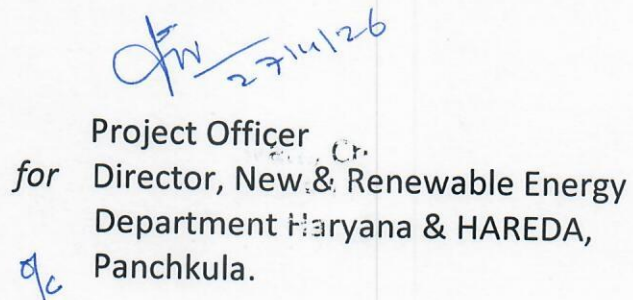 27/4/26
Project Officer
for Director, New & Renewable Energy
Department Haryana & HAREDA,
o/c Panchkula.